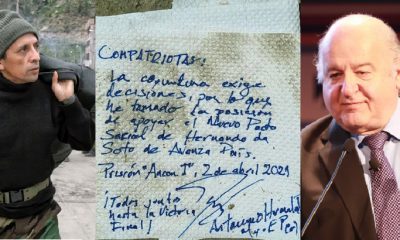 COMPATRIOTAS:
La coyuntura exige
decisiones, por lo que
he tomado la posición
de apoyar el Nuevo Pacto
Social de Hernando de
Soto de Avanza País.
Prisión "Ancon I", 2 de abril 2021
¡Todos junto
hasta la Victoria
Final!
Antauro Humala